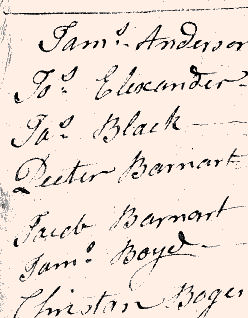 Jam.s Anderson
Jo.s Elexander
Ja.s Black
Peeter Barnart
Jacob Barnart
Jam.s Boyd
Christan Boger